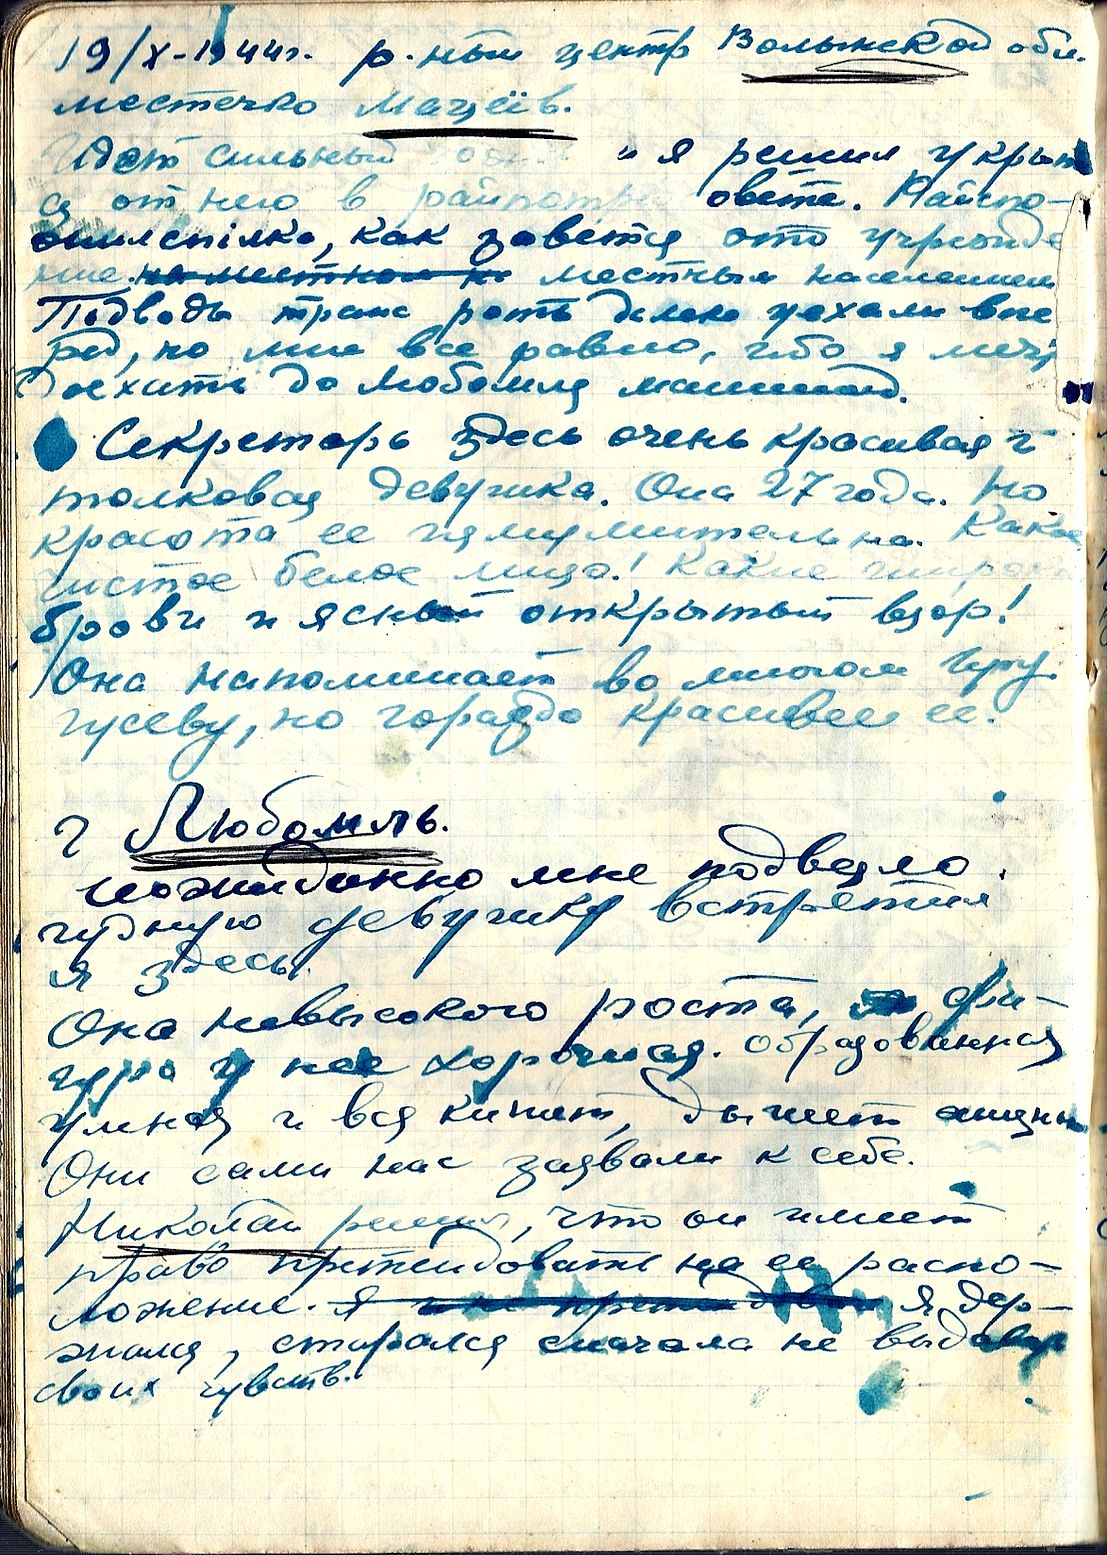 19/X-1944г. р-ный центр Волынской обл.
местечко Мацеїв.
Идет сильный и я решил укрыт
ся от него в райпотр овете. Райспо-
живспілка, как зовется это учрежде
ние на местном н местным населением
Подводы транс роты далеко уехали впе
ред, но мне все равно, ибо я могу
доехать до Любомля машиной.
Секретарь здесь очень красивая и
толковая девушка. Она 27 года. Но
красота ее изумительна. Какое
чистое белое лицо! Какие широки
брови и ясный открытый взор!
Она напоминает во многом Иру
Гусеву, но гораздо красивее ее.
г Любомль.
Неожиданно мне подвезло.
чудную девушку встретил
я здесь.
Она невысокого роста, фи-
гура у нее хорошая. Образованная
умная и вся кипит, дышет жизнью
Они сами нас зазвали к себе.
Николай решил, что он имеет
право претендовать на ее распо-
ложение. Я и не претендовал Я дер-
жался, старался сначала не выдавар
своих чувств.